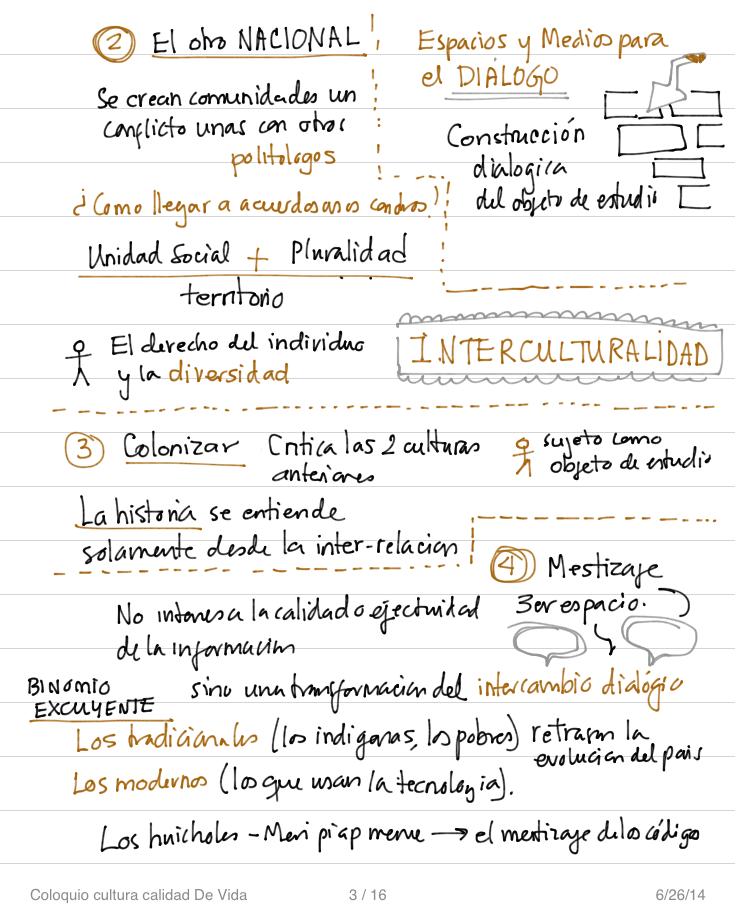 2 El otro NACIONAL
Se crean comunidades un
conflicto unas con otras
politologos
¿Como llegar a acuerdos
Unidad Social + Pluralidad
territorio
El derecho del individuo
y la diversidad
Espacios y Medios para
el DIÁLOGO
Construcción
dialogica
del objeto de estudio
INTERCULTURALIDAD
3 Colonizar Critica las 2 culturas
anteriores
sujeto como
objeto de estudio
La historia se entiende
solamente desde la inter-relacion
4 Mestizaje
3er espacio.
No interesa la calidad o efectividad
de la información
sino una transformación del intercambio dialógico
BINOMIO
EXCUYENTE
Los tradicionales (los indigenas, los pobres) retrasan la
evolucion del pais
Los modernos (los que usan la tecnologia).
Los huicholes - → el mestizaje de los código
Coloquio cultura calidad De Vida
3 / 16
6/26/14